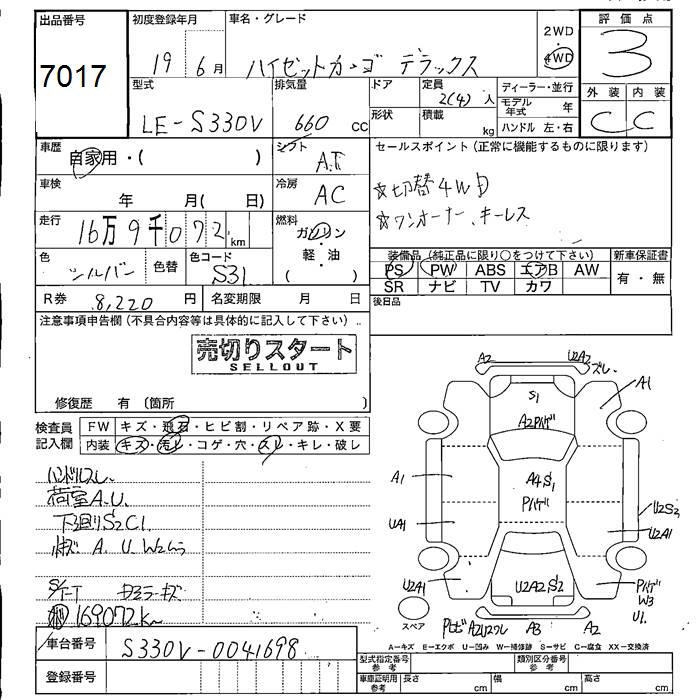 出品番号
7017
初度登録年月
19 6月
車名・グレード
ハイゼットカーゴ デラックス
2WD
4WD
評価点
3
型式
LE-S330V
排気量
660 cc
ドア
形状
定員
2(4)人
積載
kg
ディーラー・並行
モデル年式 年
ハンドル 左・右
外装 内装
C C
車歴
自家用・( )
シフト
A.T
車検
年 月( 日)
冷房
AC
セールスポイント(正常に機能するものに限ります)
☆切替4WD
☆ワンオーナー、キーレス
走行
16万9千072 km
燃料
ガソリン
・
軽・油
( )
色
シルバー
色替
色コード
S31
装備品(純正品に限り○をつけて下さい)
PS PW ABS エアB AW
SR ナビ TV カワ
新車保証書
有・無
R券 8,220 円
名変期限 月 日
後日品
注意事項申告欄(不具合内容等は具体的に記入して下さい)
売切りスタート
SELLOUT
修復歴 有(箇所 )
検査員
記入欄
FW キズ・飛石・ヒビ割・リペア跡・X要
内装 キズ・汚レ・コゲ・穴・スレ・キレ・破レ
ハンドルスレ
荷室A.U.
下廻りS2C1
A.U.W2
169072km
車台番号
S330V-0041698
登録番号
A2
U2A2 ズレ
A1
S1
A2
A1
A4S1
UA1
U2S2
U2A1
U2A1
U2A2S2
W3
U1
スペア
A3
A2
A-キズ E-エクボ U-凹み W-補修跡 S-サビ C-腐食 XX-交換済
型式指定番号
参考
類別区分番号
参考
車庫証明用
参考
長さ cm
幅 cm
高さ cm